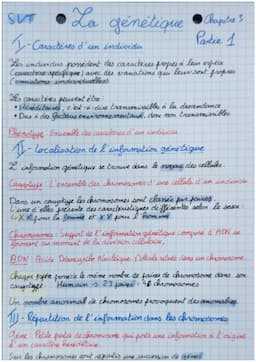 SVT La génétique Chapitre 3
Partie 1
I - Caractères d'un individu
Les individus possèdent des caractères propres à leur espèce
(caractères spécifiques) avec des variations qui leur sont propres
(variations individuelles)
Les caractères peuvent être :
• Héréditaires, c'est-à-dire transmissibles à la descendance
• Dus à des facteurs environnementaux, donc non transmissibles
Phénotype : Ensemble des caractères d'un individu
II - Localisation de l'information génétique
L'information génétique se trouve dans le noyau des cellules
Caryotype : L'ensemble des chromosomes d'une cellule d'un individu
Dans un caryotype les chromosomes sont classés par paires
L'une d'elles présente des caractéristiques différentes selon le sexe
: XX pour la femme et XY pour l'homme
Chromosomes : Support de l'information génétique composé d'ADN se
formant au moment de la division cellulaire
ADN : Acide Désoxyribo Nucléique
Chaque type possède le même nombre de paires de chromosomes dans son
caryotype. Humain : 23 paires - 46 chromosomes
Un nombre anormal de chromosomes provoquent des anomalies
III - Répartition de l'information dans les chromosomes
Gène : Petite partie de chromosome qui porte une information à l'origine
d'un caractère héréditaire.
Sur les chromosomes sont réparties une succession de gènes